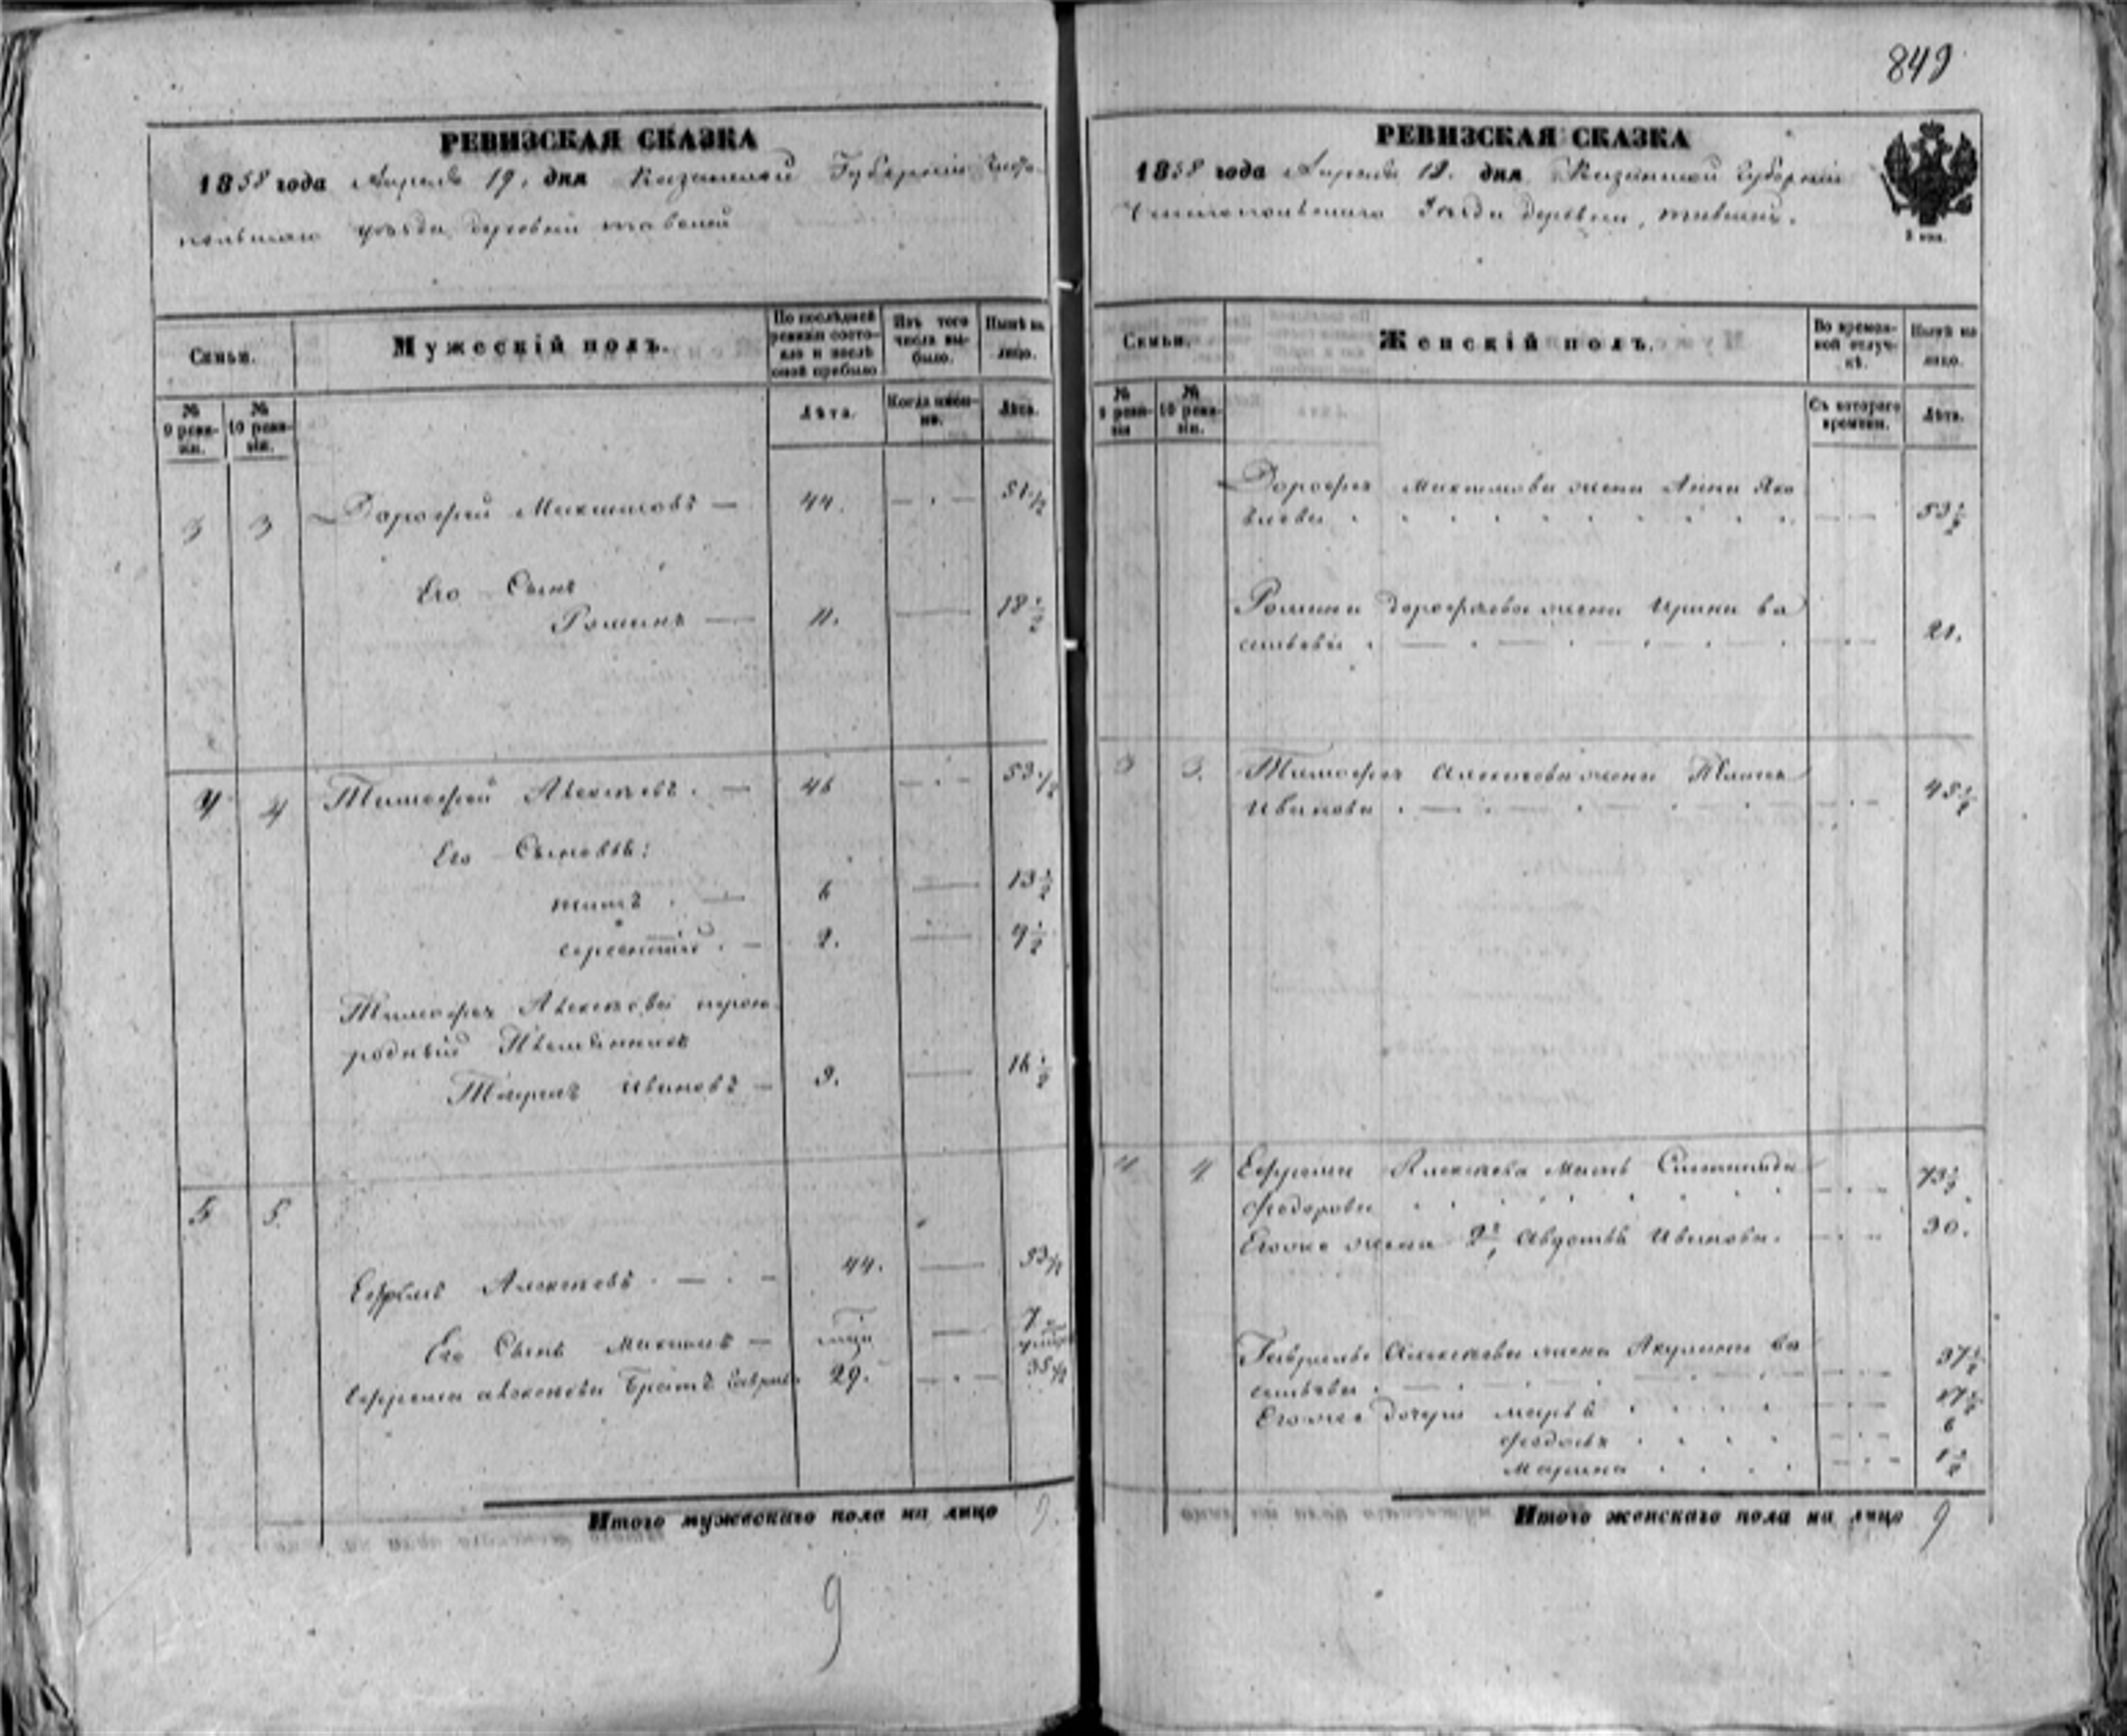 849
РЕВИЗСКАЯ СКАЗКА
1858 года Апреля 19, дня Казанской Губернии Чисто-
польскаго уезда, деревни
Семьи.
Мужескій полъ.
По последней ревизіи состояло и после оной прибыло
Изъ того числа выбыло.
Ныне на лицо.
№ 9 ревизіи.
№ 10 ревизіи.
Лета.
Когда именно.
Лета.
3 3 Дорофей Максимовъ — 44. — . — 51 1/2
Его Сынъ
Романъ — 11. — 18 1/2
4 4 Тимофей Алексеевъ . — 46 — . — 53 1/2
Его Сыновья:
титъ . — 6 — 13 1/2
2. — 9 1/2
Тимофея Алексеева
родный Племянникъ
Ивановъ — 9. — 16 1/2
5 5.
Ефремъ Алексеевъ . — . — 44. —
Его Сынъ Максимъ — —
Ефрема Алексеева Братъ 29. — . — 35 1/2
Итого мужескаго пола на лицо 9.
9
РЕВИЗСКАЯ СКАЗКА
1858 года Апреля 19. дня Казанской Губерніи
Чистопольскаго Уезда деревни,
Семьи.
Женскій полъ.
Во временной отлучке.
Ныне на лицо.
№ 9 ревизіи
№ 10 ревизіи.
Съ котораго времени.
Лета.
Дорофея Максимова жена Анна Яко
влева 53 1/2
Романа Дорофеева жена Ирина Ва
сильева 21.
3 3. Тимофея Алексеева жена
Иванова 45 1/2
4 4 Ефрема Алексеева мать
Федорова 73 1/2
Егоже жена 2я Авдотья Иванова. 30.
Гаврилы Алексеева жена Акулина Ва
сильева 37 1/2
Егоже дочери Марья 17 1/2
Федосья 6
Марина 1 1/2
Итого женскаго пола на лицо 9